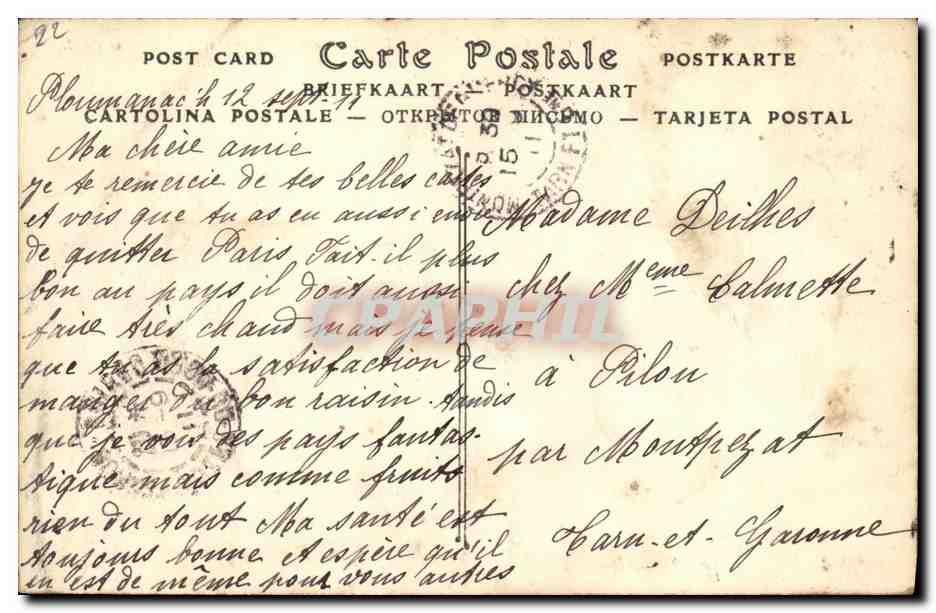 22
POST CARD Carte Postale POSTKARTE
BRIEFKAART — POSTKAART
CARTOLINA POSTALE — ОТКРЫТОЕ ПИСЬМО — TARJETA POSTAL
Ploumanac'h 12 sept. 11
Ma chère amie
je te remercie de tes belles cartes
et vois que tu as eu aussi envie
de quitter Paris Fait-il plus
bon au pays il doit aussi
faire très chaud mais je pense
que tu as la satisfaction de
manger du bon raisin. tandis
que je vois des pays fantas-
tique mais comme fruits
rien du tout Ma santé est
toujours bonne et espère qu'il
en est de même pour vous autres
Madame Deilhes
chez Meme Calmette
à Pilou
par Montpezat
Tarn-et-Garonne
15 9 11
CPAPHIL